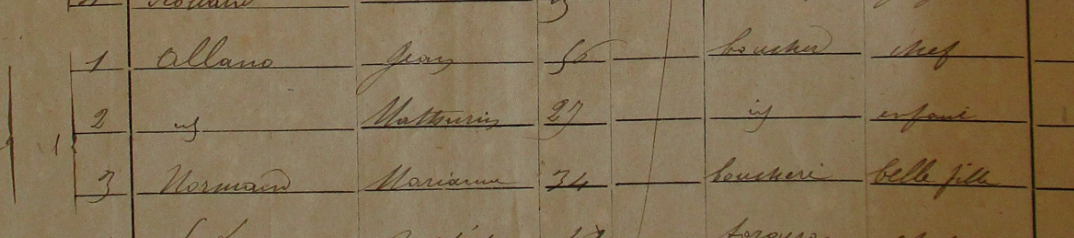 1 Allano Jean 56 boucher chef
2 id Mathurin 27 id enfant
3 Normand Marianne 34 bouchère belle fille